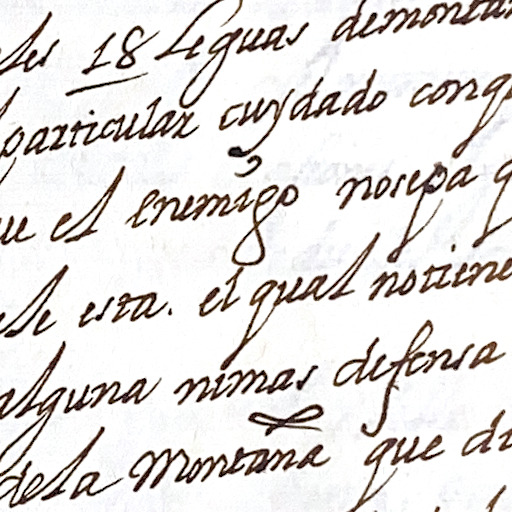 18 Leguas demonta
particular cuydado conq
ue el enemigo nosepa q
ele esta. el qual notiene
alguna nimas defensa
dela Montaña que di